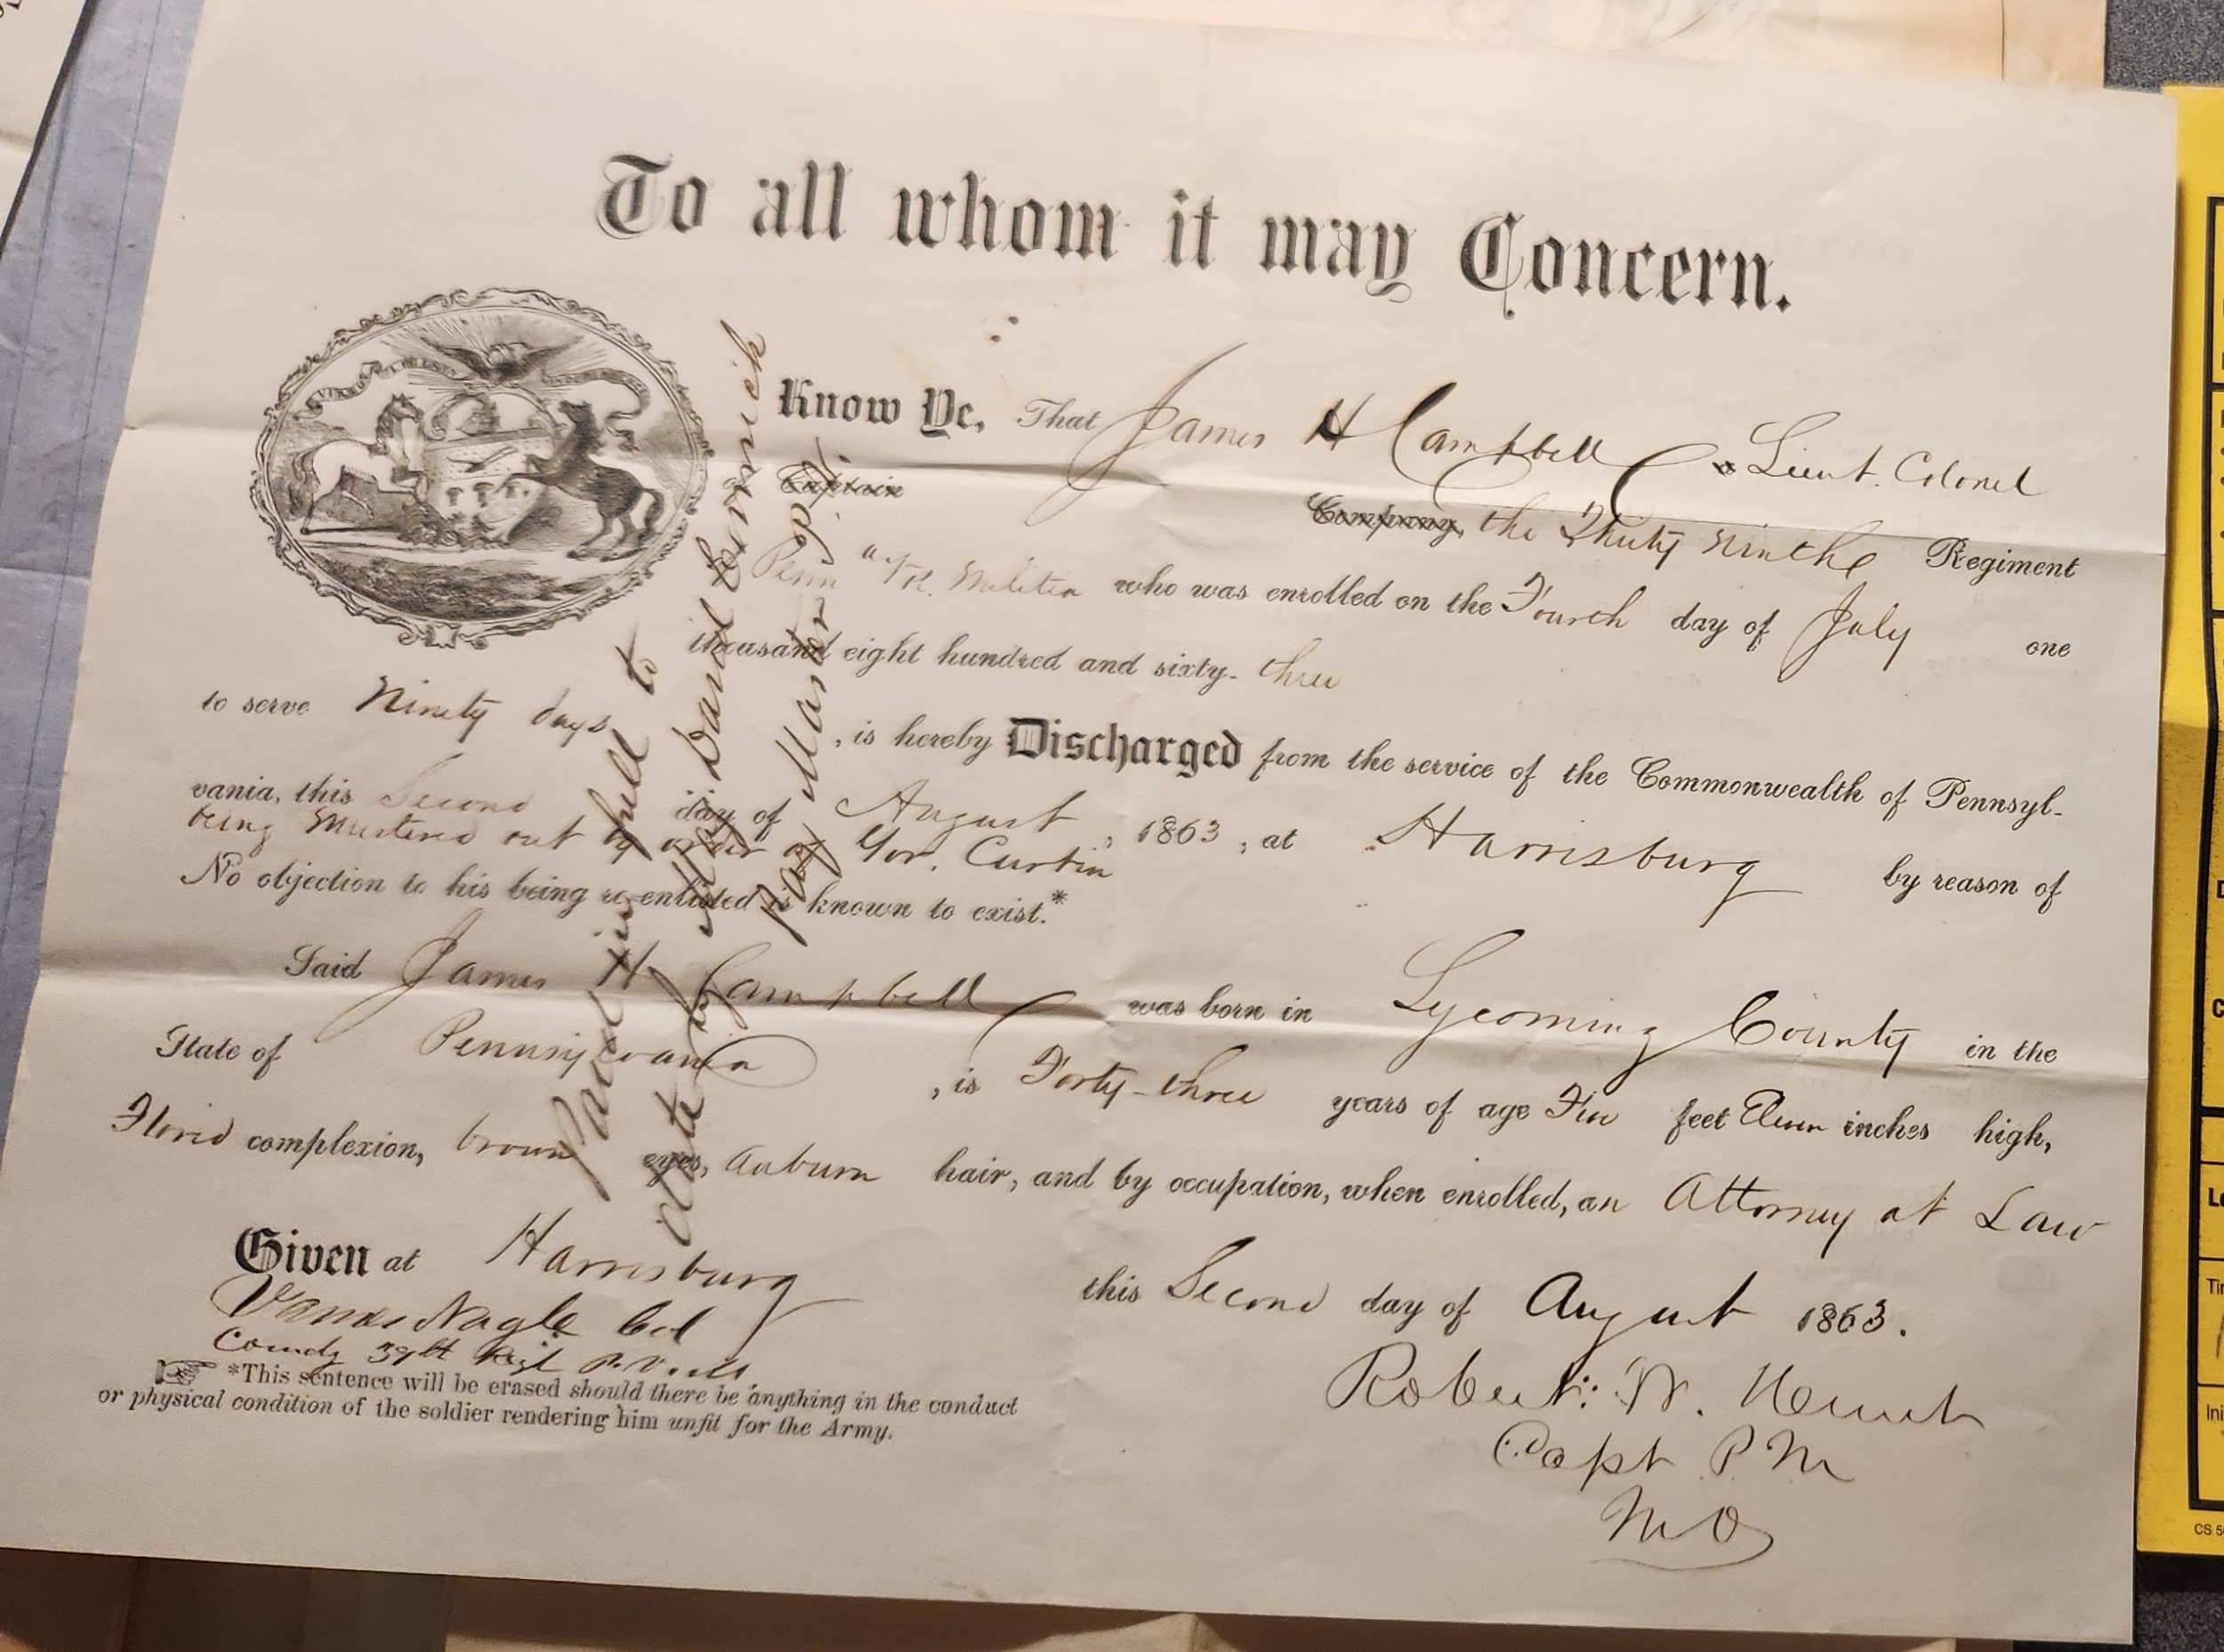 To all whom it may Concern.
Know Ye, That James H Campbell a Lieut. Colonel
Captain Company, the Thirty Ninthe Regiment
Penn Militia who was enrolled on the Fourth day of July one
thousand eight hundred and sixty-three
to serve Ninety days, is hereby Discharged from the service of the Commonwealth of Pennsyl-
vania, this Second day of August, 1863, at Harrisburg by reason of
being Mustered out by order of Gov. Curtin
No objection to his being re-enlisted is known to exist.*
Said James H Campbell was born in Lycoming County in the
State of Pennsylvania, is Forty-three years of age Five feet Eleven inches high,
Florid complexion, brown eyes, Auburn hair, and by occupation, when enrolled, an Attorney at Law
Given at Harrisburg this Second day of August 1863.
Nagle Col
Comdg 39th Regt P.V.M.
*This sentence will be erased should there be anything in the conduct
or physical condition of the soldier rendering him unfit for the Army.
Robert
Capt P M
M O
Paid in full to
date by Maj. Daniel
Pay Master